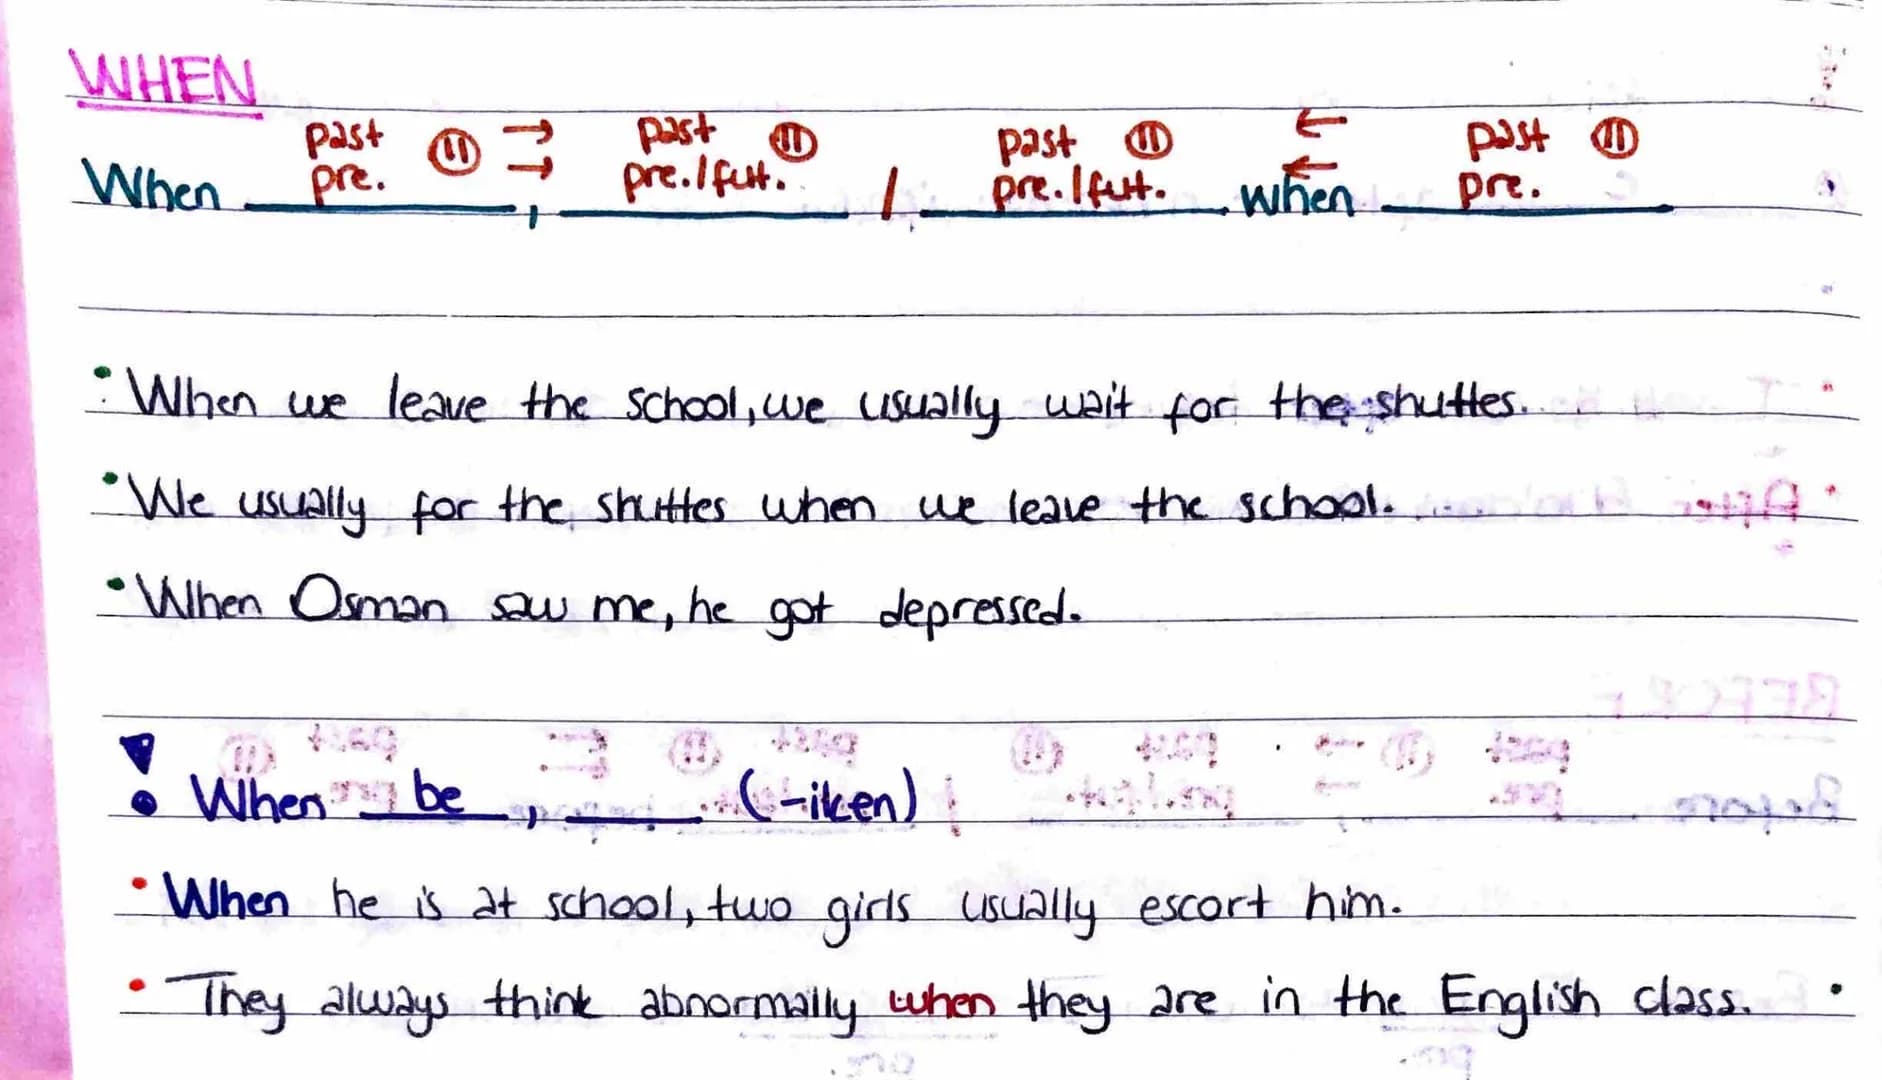 WHEN
past ⑪ → past ⑪ past ⑪ ← past ⑪
pre. → pre./fut. pre./fut. ← pre.
When ______, ______ / ______ when ______
• When we leave the school, we usually wait for the shuttles.
• We usually for the shuttles when we leave the school.
• When Osman saw me, he got depressed.
! When be, ____ (-iken)
• When he is at school, two girls usually escort him.
• They always think abnormally when they are in the English class.